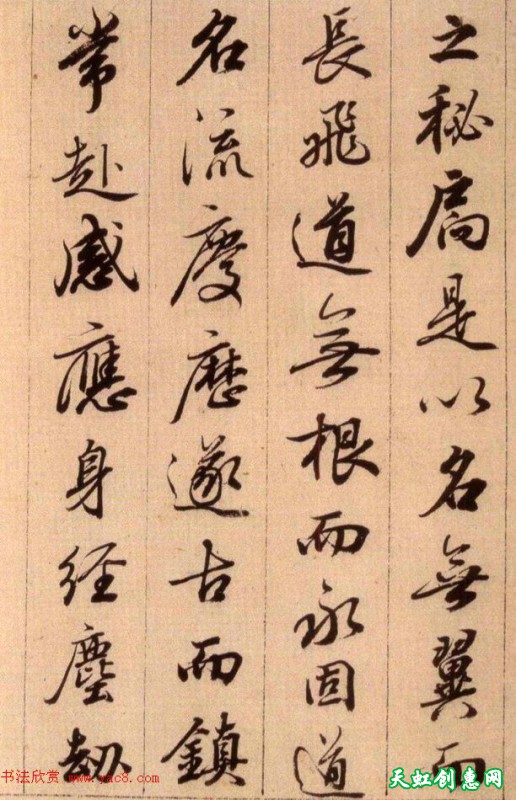 之秘扃是以名無翼而
長飛道無根而永固道
名流慶歷遂古而鎮
常赴感應身經塵劫
书法欣赏 www.yac8.com
天虹创惠网